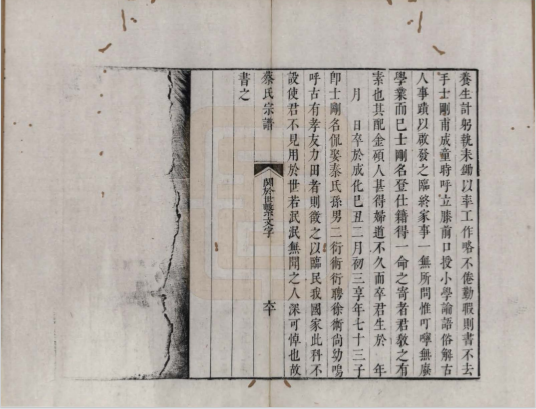 養生計躬執耒鋤以率工作略不倦勤暇則書不去
手士剛甫成童時呼立膝前口授小學論語俗解古
人事蹟以啟發之臨終家事一無所問惟叮嚀無廢
學業而已士剛名登仕籍得一命之寄者君教之有
素也其配金碩人甚得婦道不久而卒君生於年
月日卒於成化己丑二月初三享年七十三子
卽士剛名侃娶秦氏孫男二衍衛衍聘徐衛尚幼嗚
呼古有孝友力田者則徵之以臨民我國家此科不
設使君不見用於世若泯泯無聞之人深可悼也故
書之
蔡氏宗譜
關於世繫文字